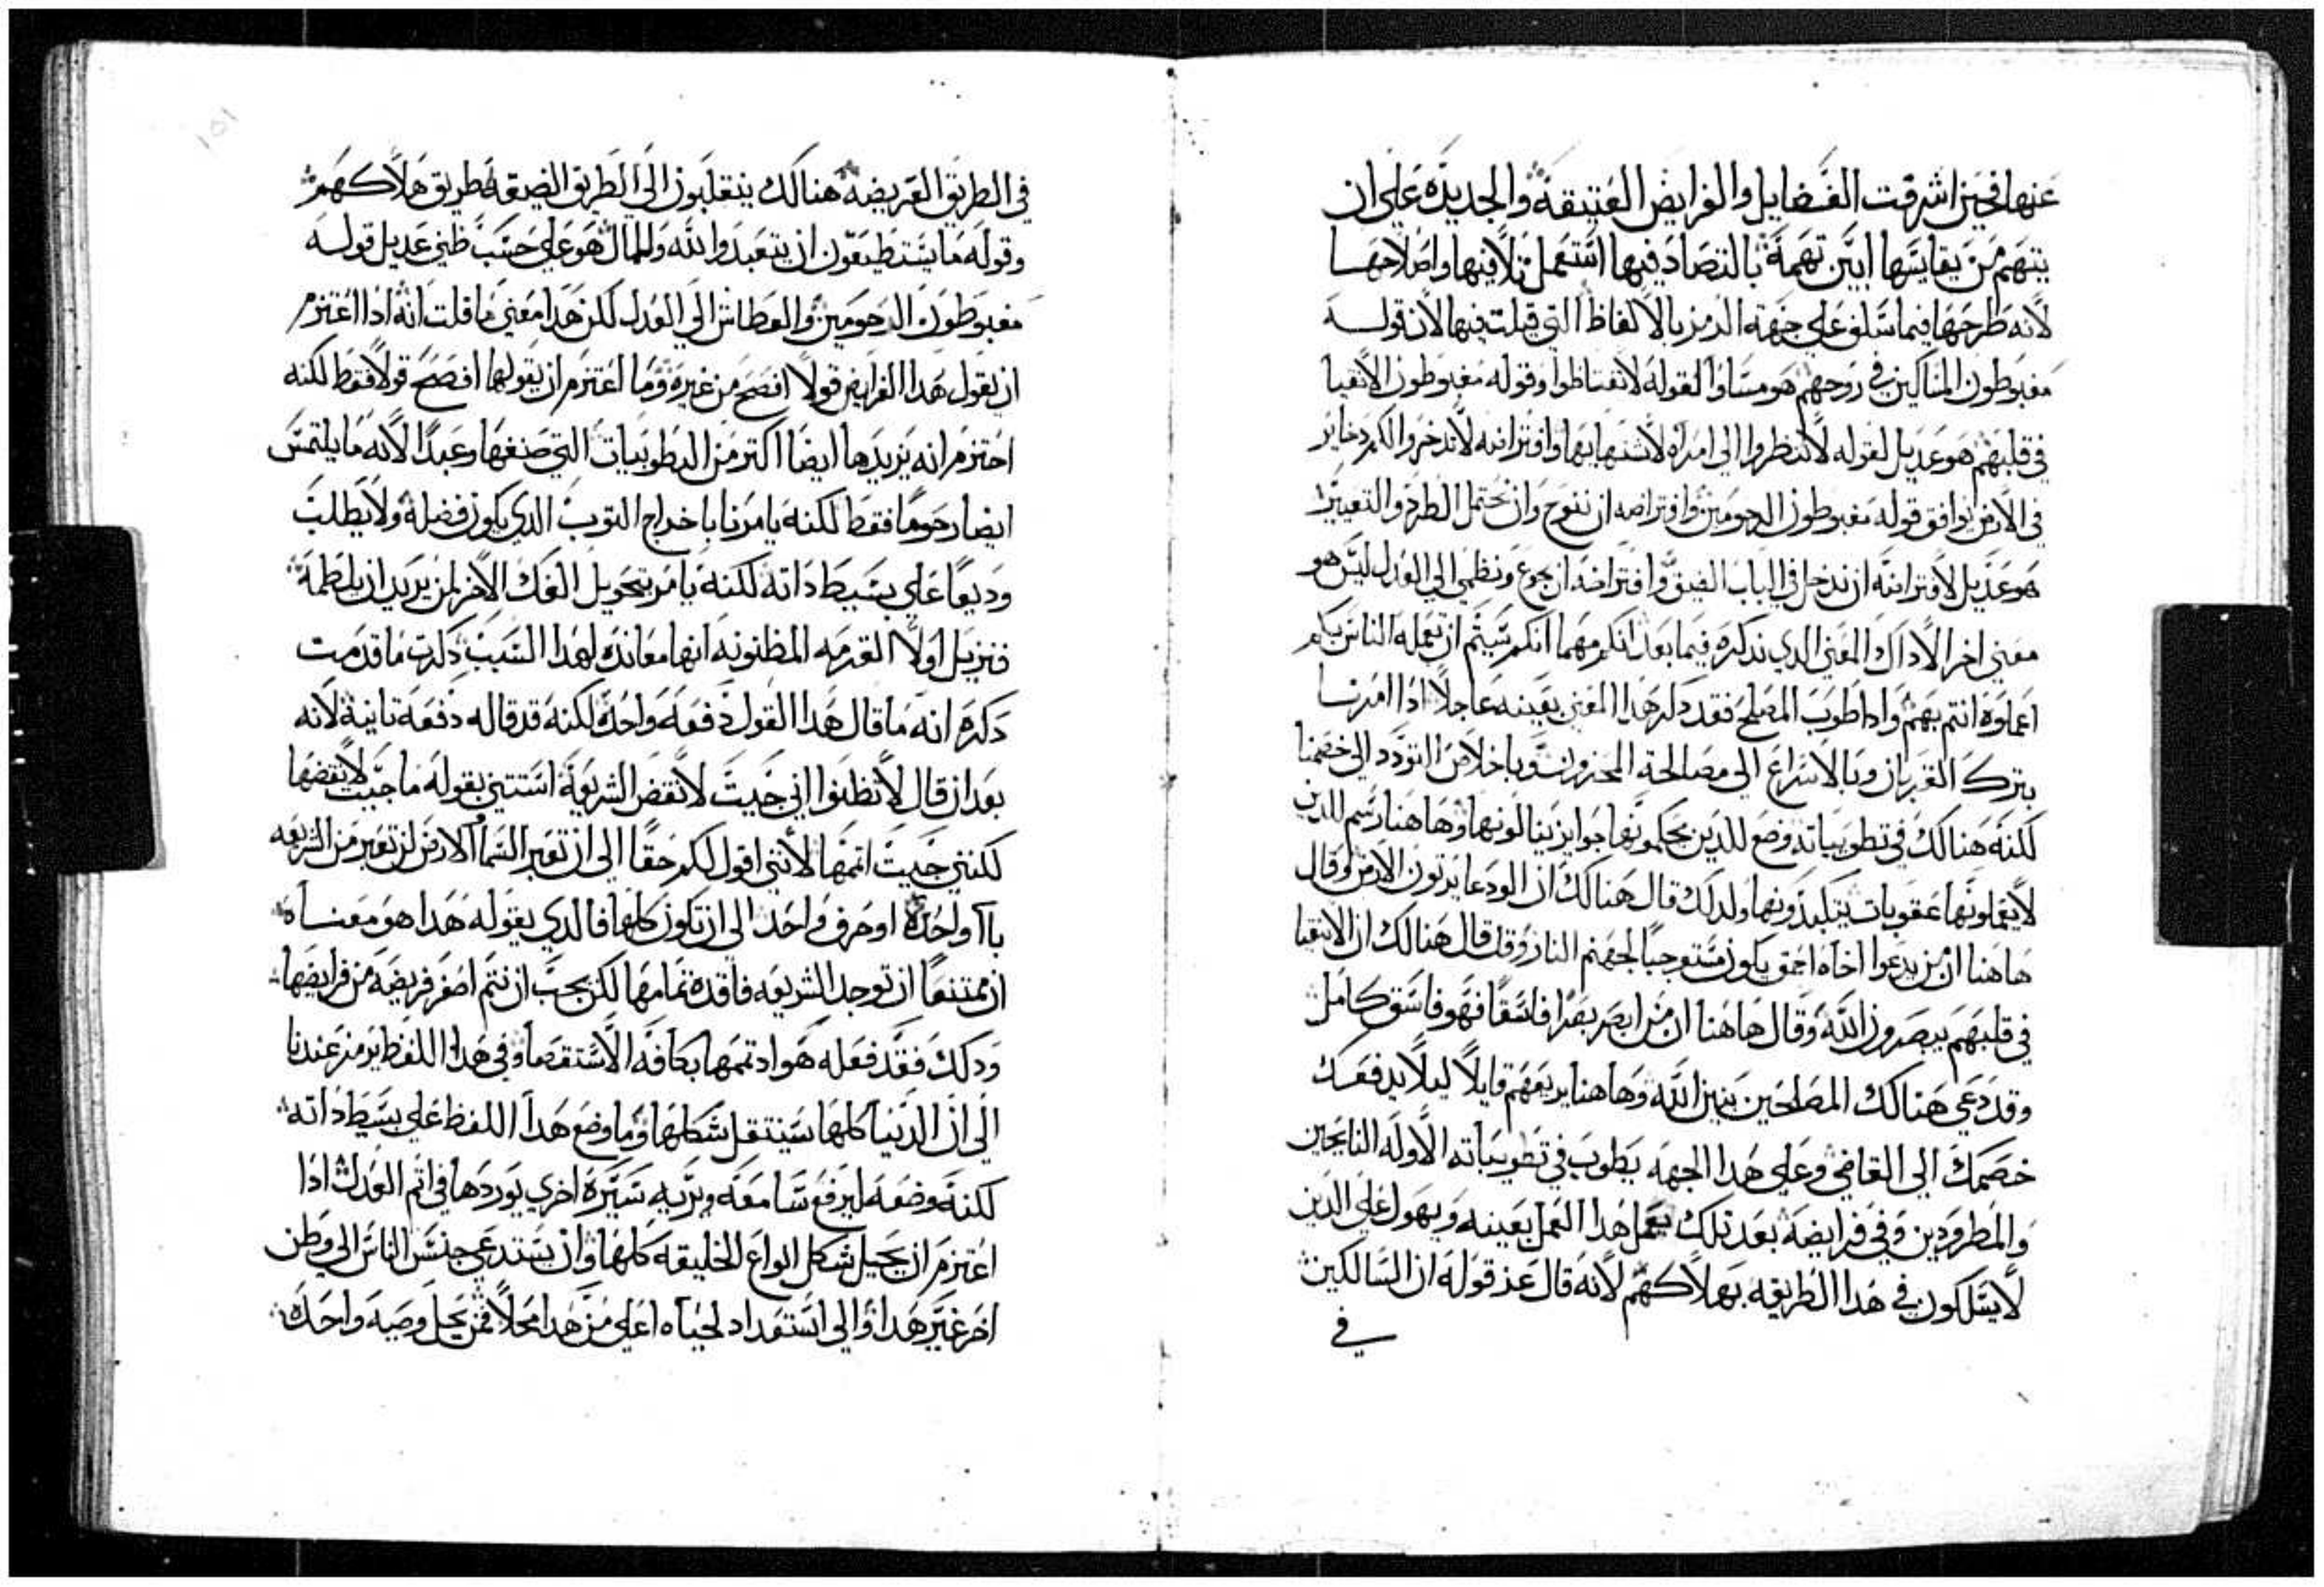 عنها فحين اشرقت الفضايل والفرايض العتيقة والجديده على ان
يتهم من يقايسها ابين تهمة بالتضاد فيها استعمل تلافيها واصلاحها
لانه طرحها فيما سلف على جهة الرمز بالالفاظ التي قيلت فيها لان قوله
مغبوطون المساكين في روحهم هو مساو لقوله لا تغتاظوا وقوله مغبوطون الانقيا
في قلبهم هو عديل لقوله لا تنظروا الى امراه لاشتهايها وافتراضه لا تدخروا لكم دخاير
في الارض يوافق قوله مغبوطون الرحومين وافتراضه ان ننوح وان نحتمل الطرد والتعيير
هو عديل لافتراضه ان ندخل في الباب الضيق وافتراضه ان نجوع ونظمى الى العدل ليس هو
معني اخر الا داك المعني الدي ندكره فيما بعد انكم مهما انكم شيتم ان تعمله الناس بكم
اعملوه انتم بهم وادا طوب المصلح فقد دكر هدا المعني بعينه عاجلا ادا امرنا
بترك القربان وبالاسراع الى مصالحة المحزون وباخلاص التودد الى خصمنا
لكنه هنالك في تطويباته وضع للدين يحكمونها جوايز ينالونها وهاهنا رسم للدين
لا يعملونها عقوبات يتكبدونها ولدلك قال هنالك ان الودعا يرتون الارض وقال
هاهنا ان من يدعوا اخاه احمق يكون مستوجبا لجهنم النار وقد قال هنالك ان الانقيا
في قلبهم يبصرون الله وقال هاهنا ان من ابصر بصرا فاسقا فهو فاسق كامل
وقد دعى هنالك المصلحين بنين الله وهاهنا يريعهم قايلا ليلا يدفعك
خصمك الى القاضي وعلى هدا الجهه يطوب في تطويباته الاوله النايحين
والمطرودين وفي فرايضه بعد تلك يعمل هدا العمل بعينه ويهول على الدين
لا يسلكون في هدا الطريقه بهلاكهم لانه قال عند قوله ان السالكين
في
في الطريق العريضه هنالك ينقلبون الى الطريق الضيقه طريق هلاكهم
وقوله ما يستطيعون ان يتعبدوا لله وللمال هو على حسب ظني عديل قوله
مغبوطون الرحومين والعطاش الى العدل لكن هدا معني ما قلت انه ادا اعتزم
ان يقول هدا الفرايض قولا افصح من غيره وما اعتزم ان يقولها افصح قولا فقط لكنه
اعتزم انه يزيدها ايضا اكتر من التطويبات التي صنفها وعبدا لانه ما يلتمس
ايضا رحوما فقط لكنه يامرنا باخراج التوب الدي يكون فضله ولا يطلب
وديعا على بسيط داته لكنه يامر بتحويل الفك الاخر لمن يريد ان يلطمه
فنزيل اولا القدمه المظنونه انها معانده لهدا السبب دكرت ما قدمت
دكره انه ما قال هدا القول دفعه واحده لكنه قد قاله دفعه تانية لانه
بعد ان قال لا تظنوا اني جيت لانقض الشريعة استتني بقوله ما جيت لانقضها
لكنني جيت اتمها لأنني اقول لكم حقا الى ان تعبر السما والارض لن تعبر من الشريعه
يآ واحدة او حرف واحد الى ان تكون كلها فالدي يقوله هدا هو معناه
ان ممتنعا ان توجد الشريعه فاقدة تمامها لكن يجب ان تتم اصغر فريضه من فرايضها
ودلك فقد فعله هو اد تممها بكافه الاستقصا وفي هدا اللفظ يرمز عندنا
الى ان الدنيا كلها سينتقل شكلها وما وضع هدا اللفظ على بسيط داته
لكنه وضعه ليرفع سامعه ويريه سيرة اخرى يوردها في اتم العدل ادا
اعتزم ان يحيل شكل انواع الخليقه كلها وان يستدعي جنس الناس الى وطن
اخر غير هدا والى استعداد لحياه اعلى من هدا محلا فمن يحل وصيه واحده